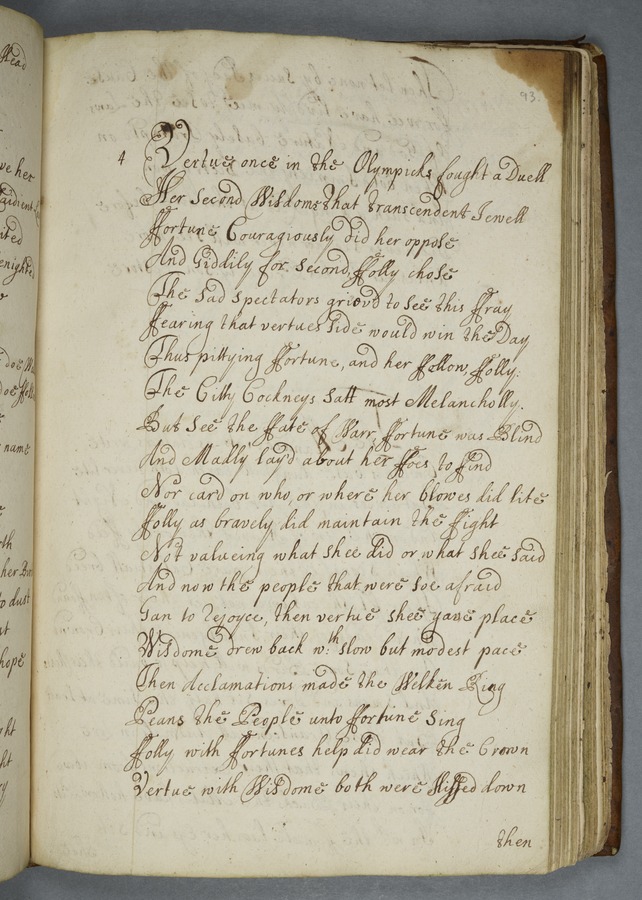 93.
4 Vertue once in the Olympicks fought a Duell
Her Second Wisdome that transcendent Jewell
ffortune Couragiously did her oppose
And Giddily for Second ffolly chose
The Sad Spectators griev'd to see this ffray
ffearing that vertues Side would win the Day
Thus pittying ffortune, and her ffellow, ffolly:
The Citty Cockneys Satt most Melancholly.
But See the ffate of Warr, ffortune was Blind
And Madly lay'd about her ffoes to find
Nor card on who, or where her blowes did lite
ffolly as bravely did maintain the ffight
Not valueing what Shee did or what Shee Said
And now the people that were Soe afraid
Gan to rejoyce, then vertue Shee gave place
Wisdome drew back wth Slow but modest pace
Then acclamations made the Welken Ring
Peans the People unto ffortune Sing
ffolly with ffortunes help did wear the Crown
Vertue with Wisdome both were Hissed down
then